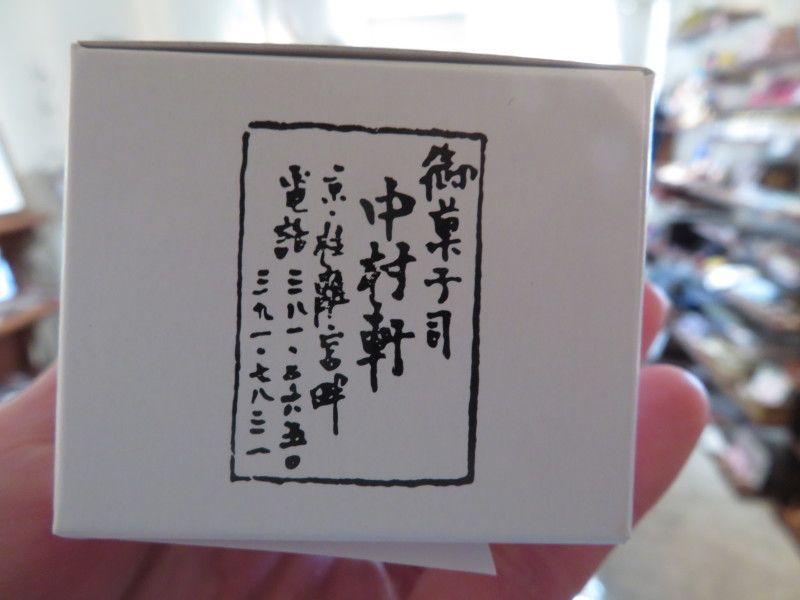 御菓子司
中村軒
京・桂離宮畔
電話 三八一・二六五〇
三九一・七八三一